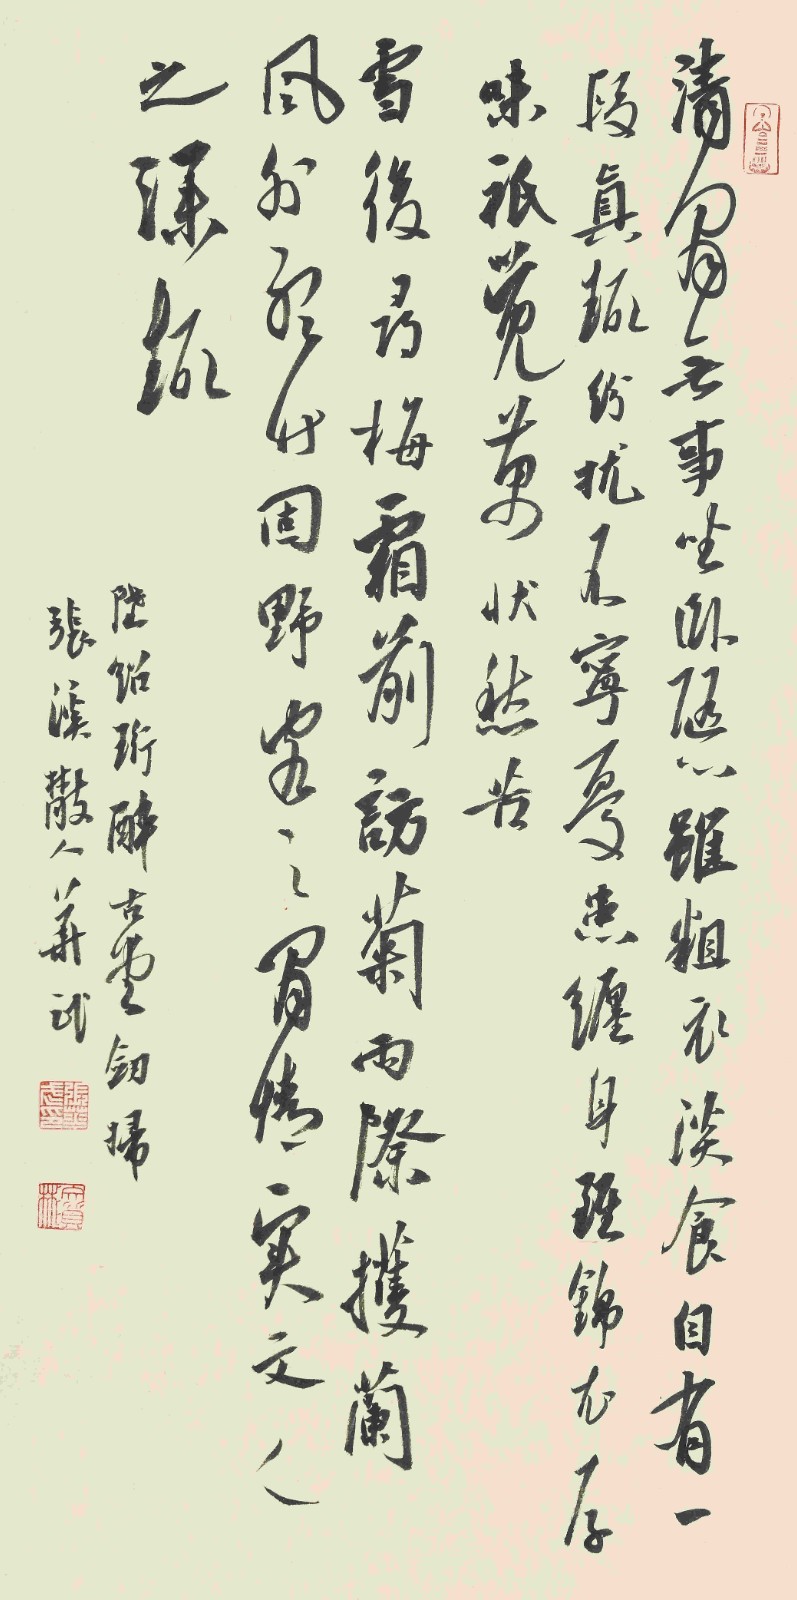 清閒無事坐臥隨心雖粗衣淡食自有一
段真趣紛擾不寧憂患纏身雖錦衣厚
味祇覺萬狀愁苦
雪後尋梅霜前訪菊雨際護蘭
風外聽竹固野客之閒情實文人
之深趣
陸紹珩醉古堂劍掃
張溪散人華武